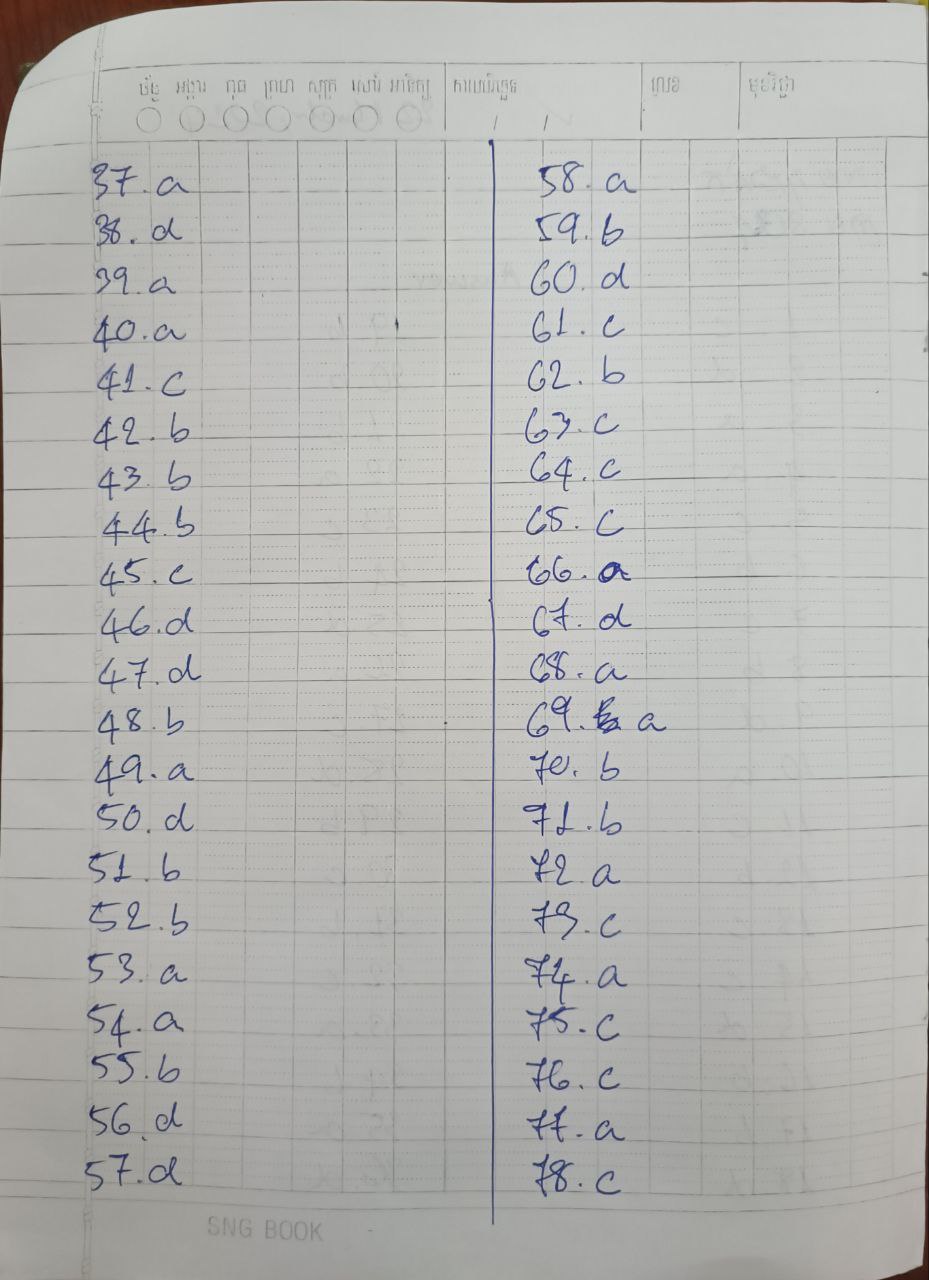 ច័ន្ទ អង្គារ ពុធ ព្រហ សុក្រ សៅរ៍ អាទិត្យ
លេខ
មុខវិជ្ជា
/ /
37. a
38. d
39. a
40. a
41. c
42. b
43. b
44. b
45. c
46. d
47. d
48. b
49. a
50. d
51. b
52. b
53. a
54. a
55. b
56. d
57. d
58. a
59. b
60. d
61. c
62. b
63. c
64. c
65. c
66. a
67. d
68. a
69. a
70. b
71. b
72. a
73. c
74. a
75. c
76. c
77. a
78. c
SNG BOOK